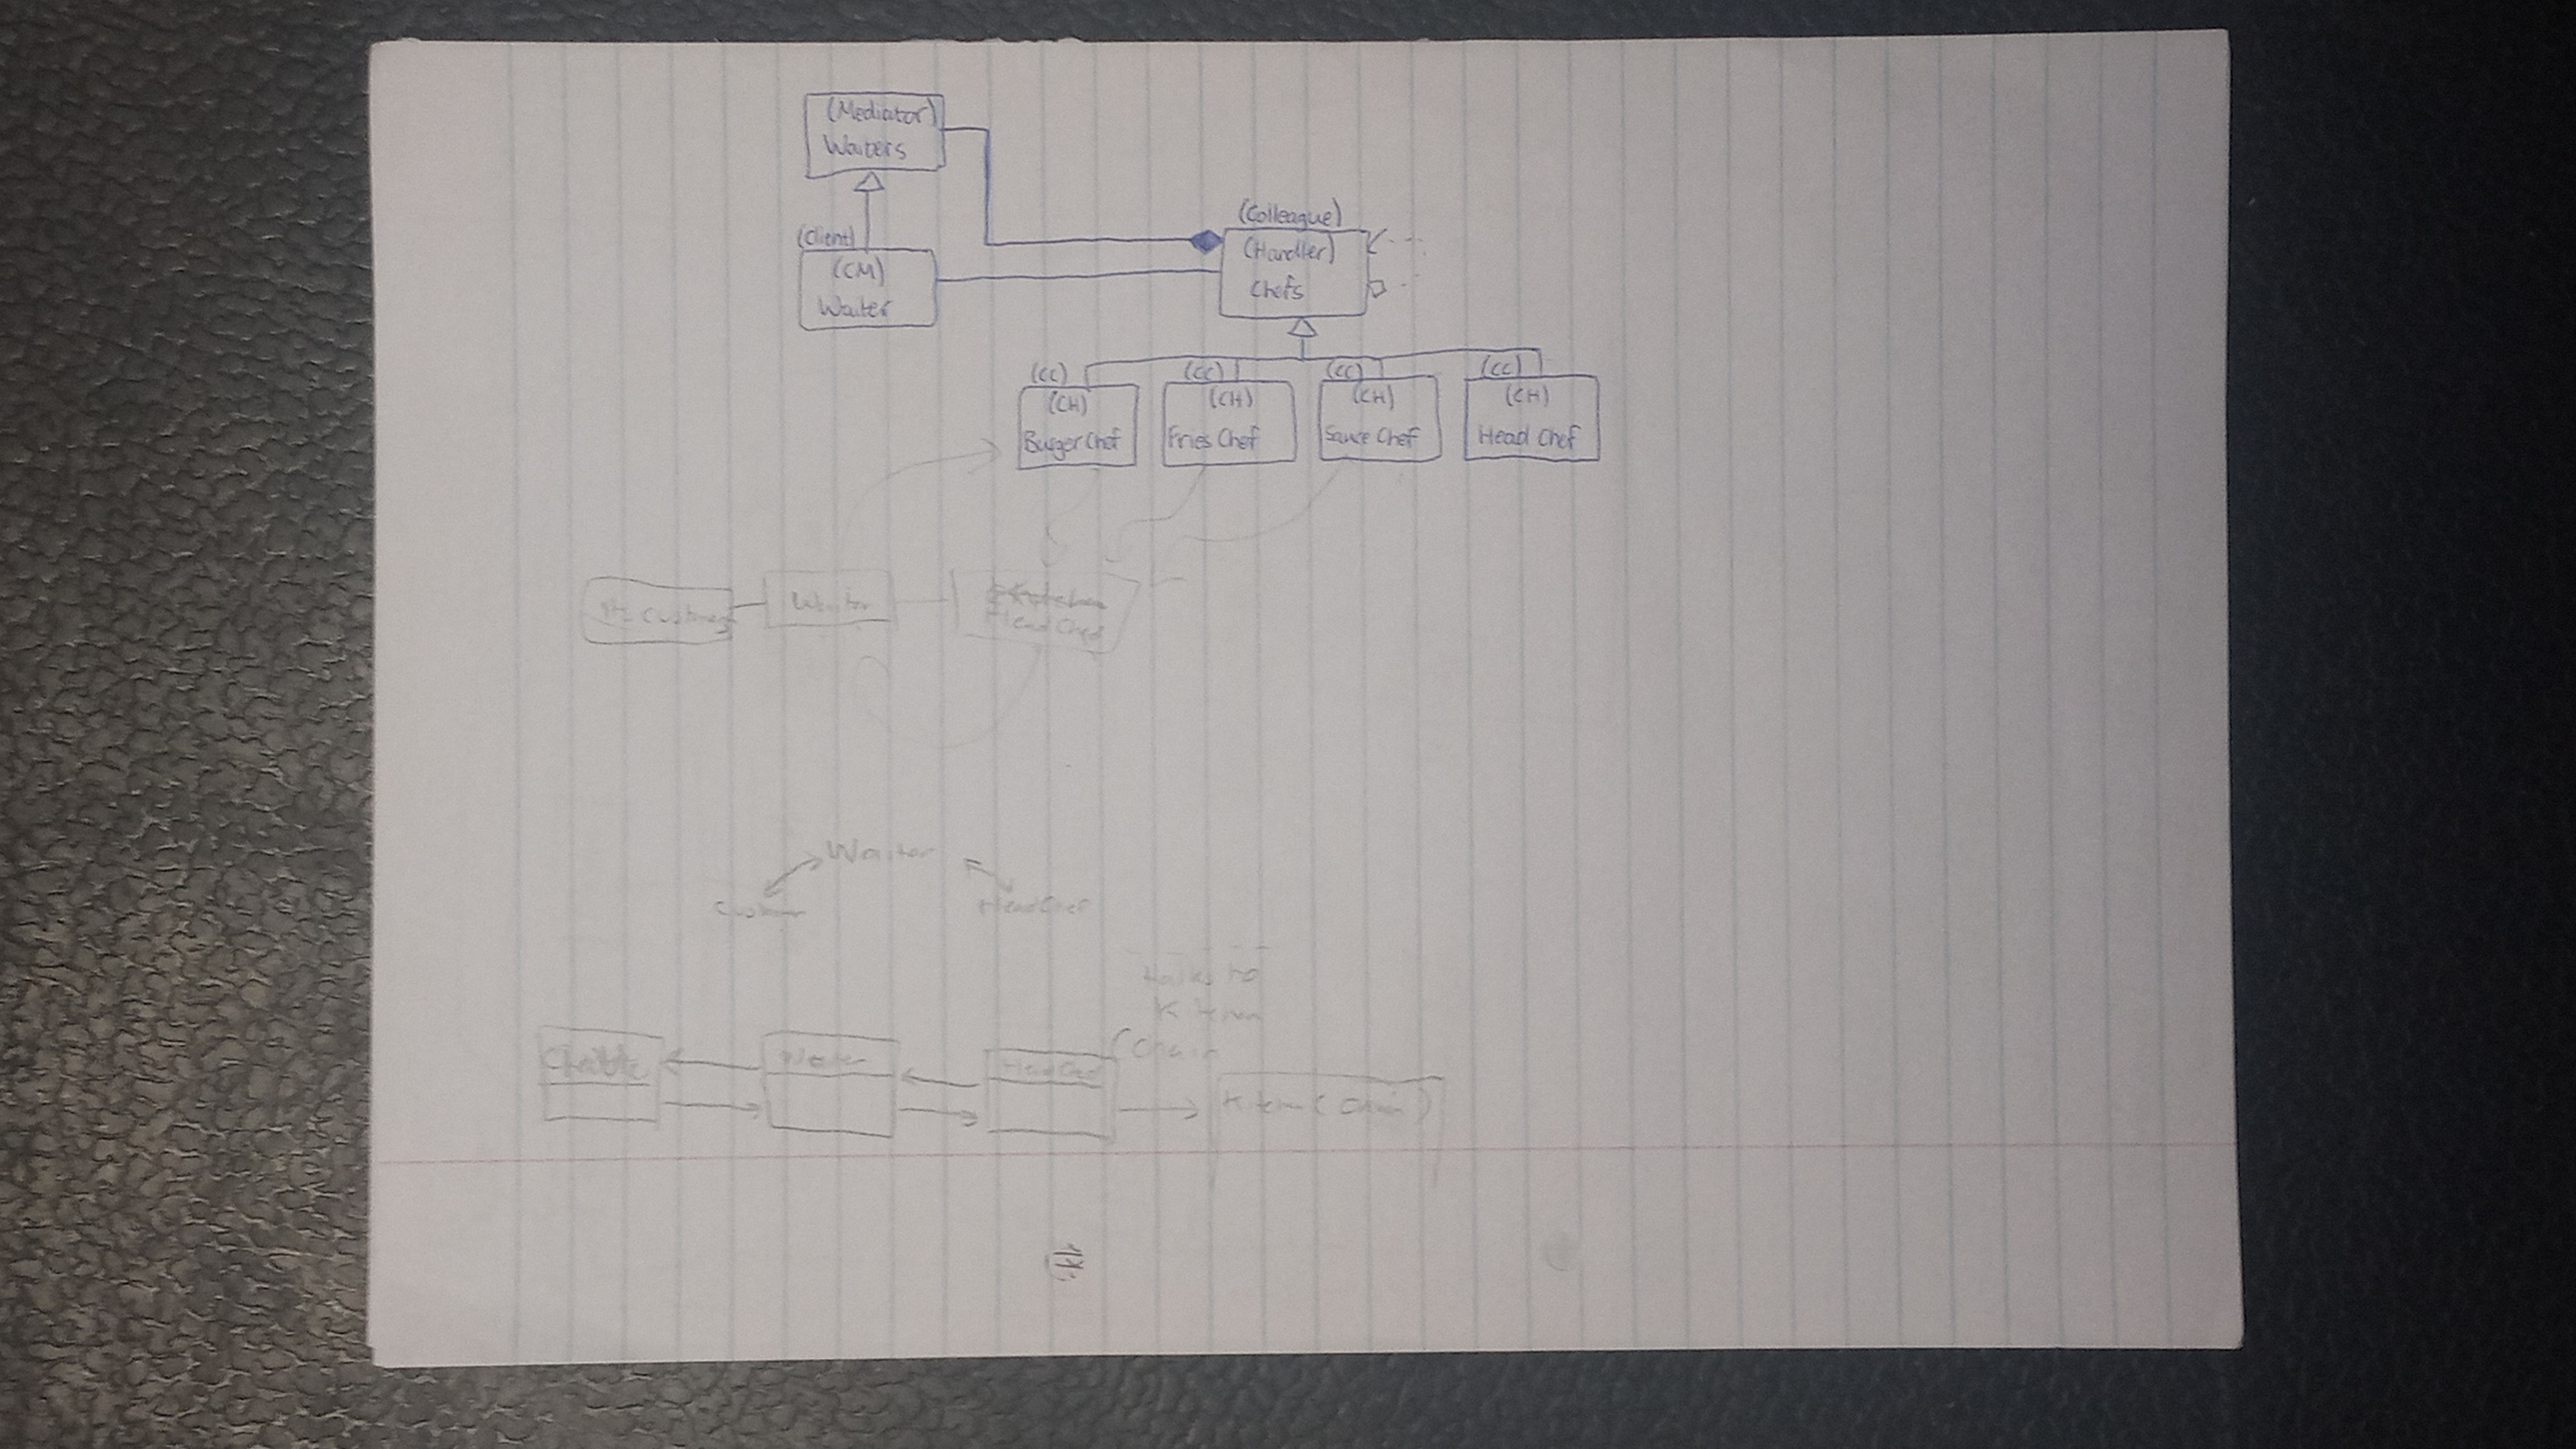 (Mediator)
Waiters
(Client)
(CM)
Waiter
(Colleague)
(Handler)
Chefs
(CC)
(CH)
Burger Chef
(CC)
(CH)
Fries Chef
(CC)
(CH)
Sauce Chef
(CC)
(CH)
Head Chef
Waiter
Head Chef
Waiter
Customer
Head Chef
talks to
Head Chef
(Chain